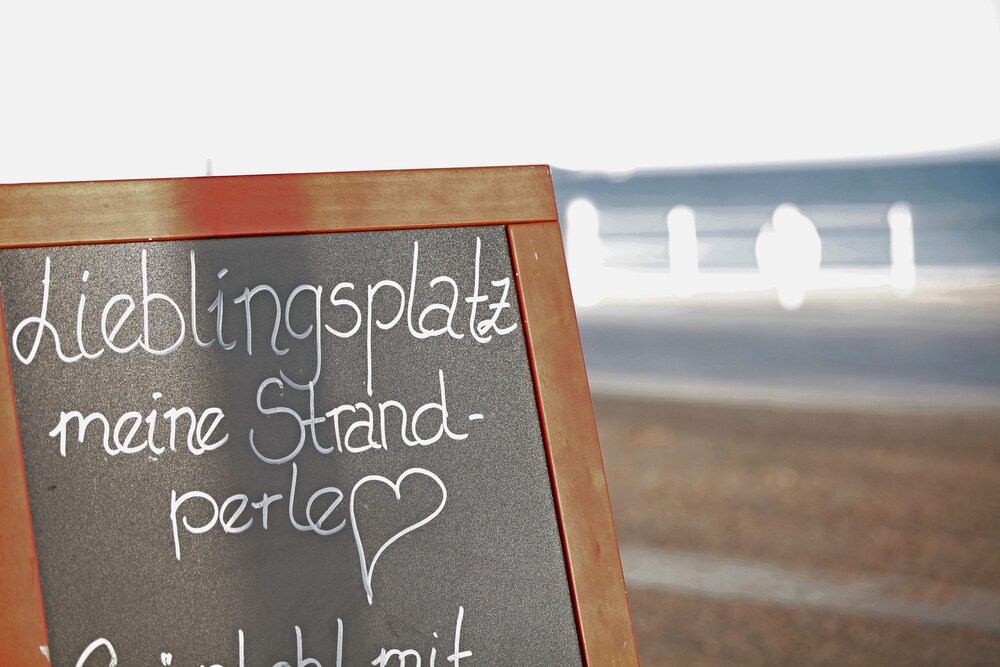 Lieblingsplatz
meine Strand-
perle♡
Grünkohl mit